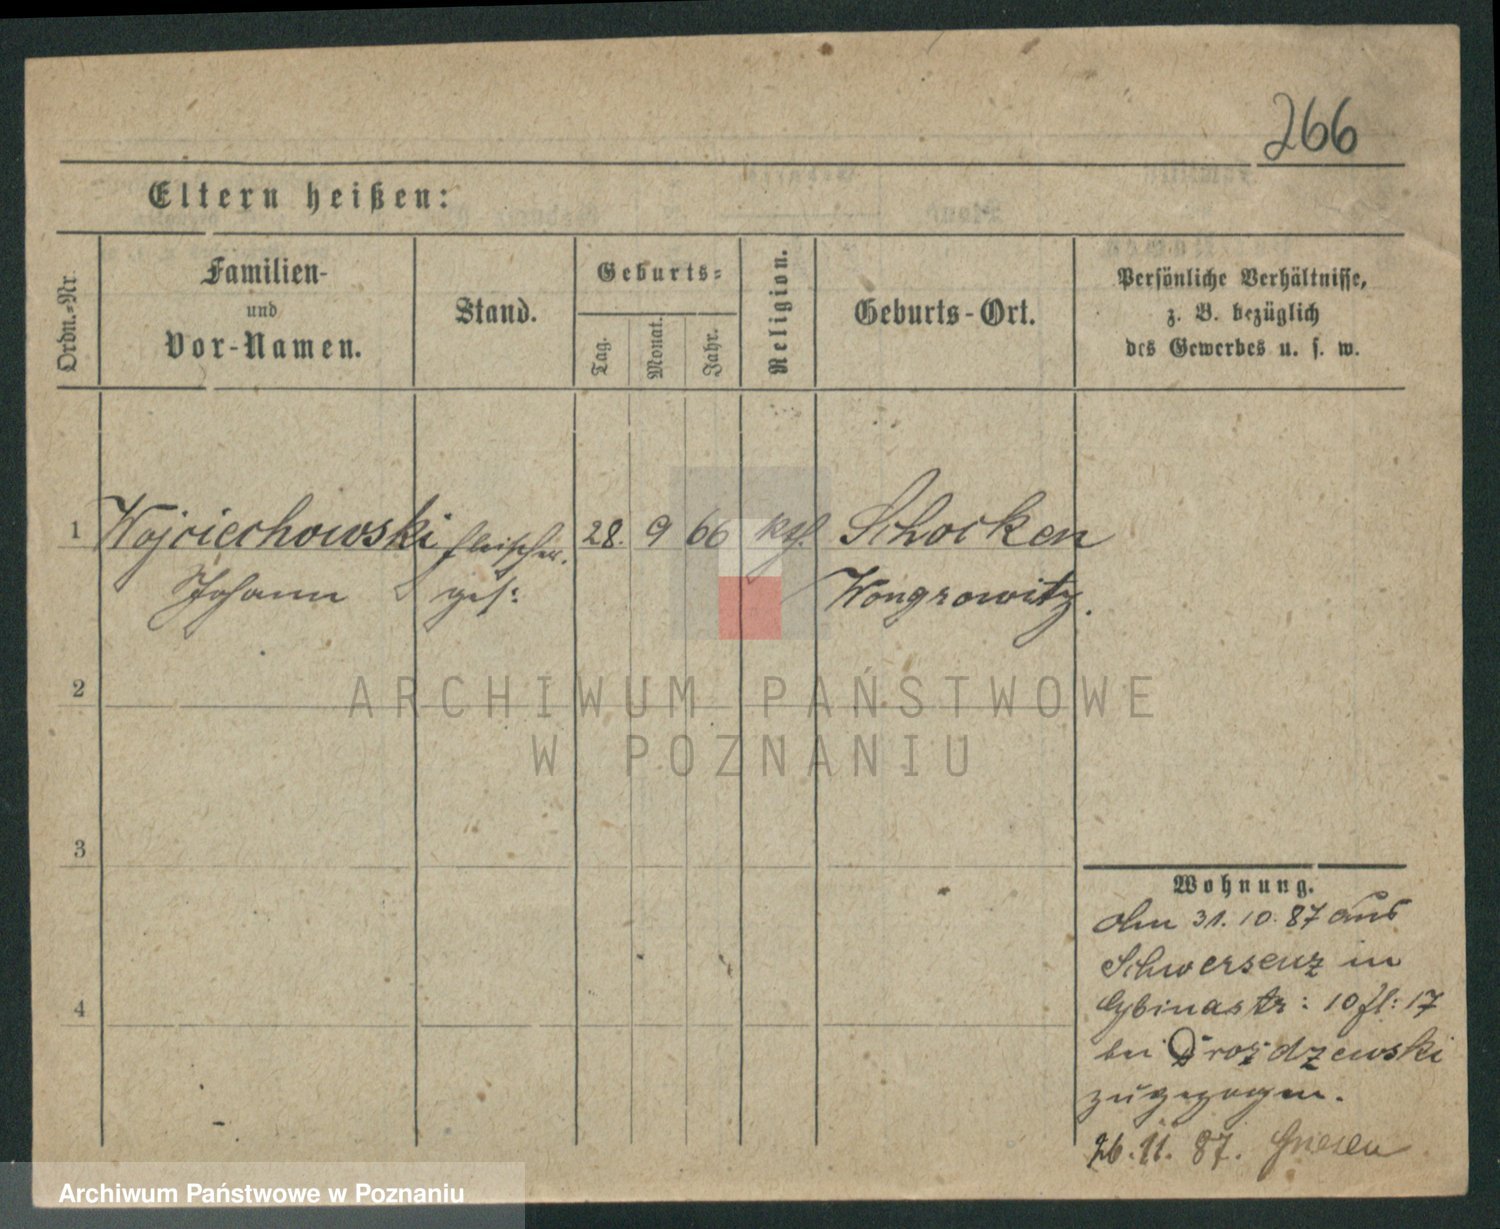 266
Eltern heißen:
Ordn.-Nr.
Familien-
und
Vor-Namen.
Stand.
Geburts-
Tag.
Monat.
Jahr.
Religion.
Geburts-Ort.
Persönliche Verhältnisse,
z. B. bezüglich
des Gewerbes u. s. w.
1 Wojciechowski Fleischer- 28. 9 66 kath. Schocken
Johann ges: Wongrowitz.
2
ARCHIWUM PAŃSTWOWE
W POZNANIU
3
Wohnung.
Am 31.10.87 aus
Schwersenz in
4
Cybinastr: 10 fl: 17
bei Drozdzewski
zugezogen.
26.11.87. Gnesen
Archiwum Państwowe w Poznaniu